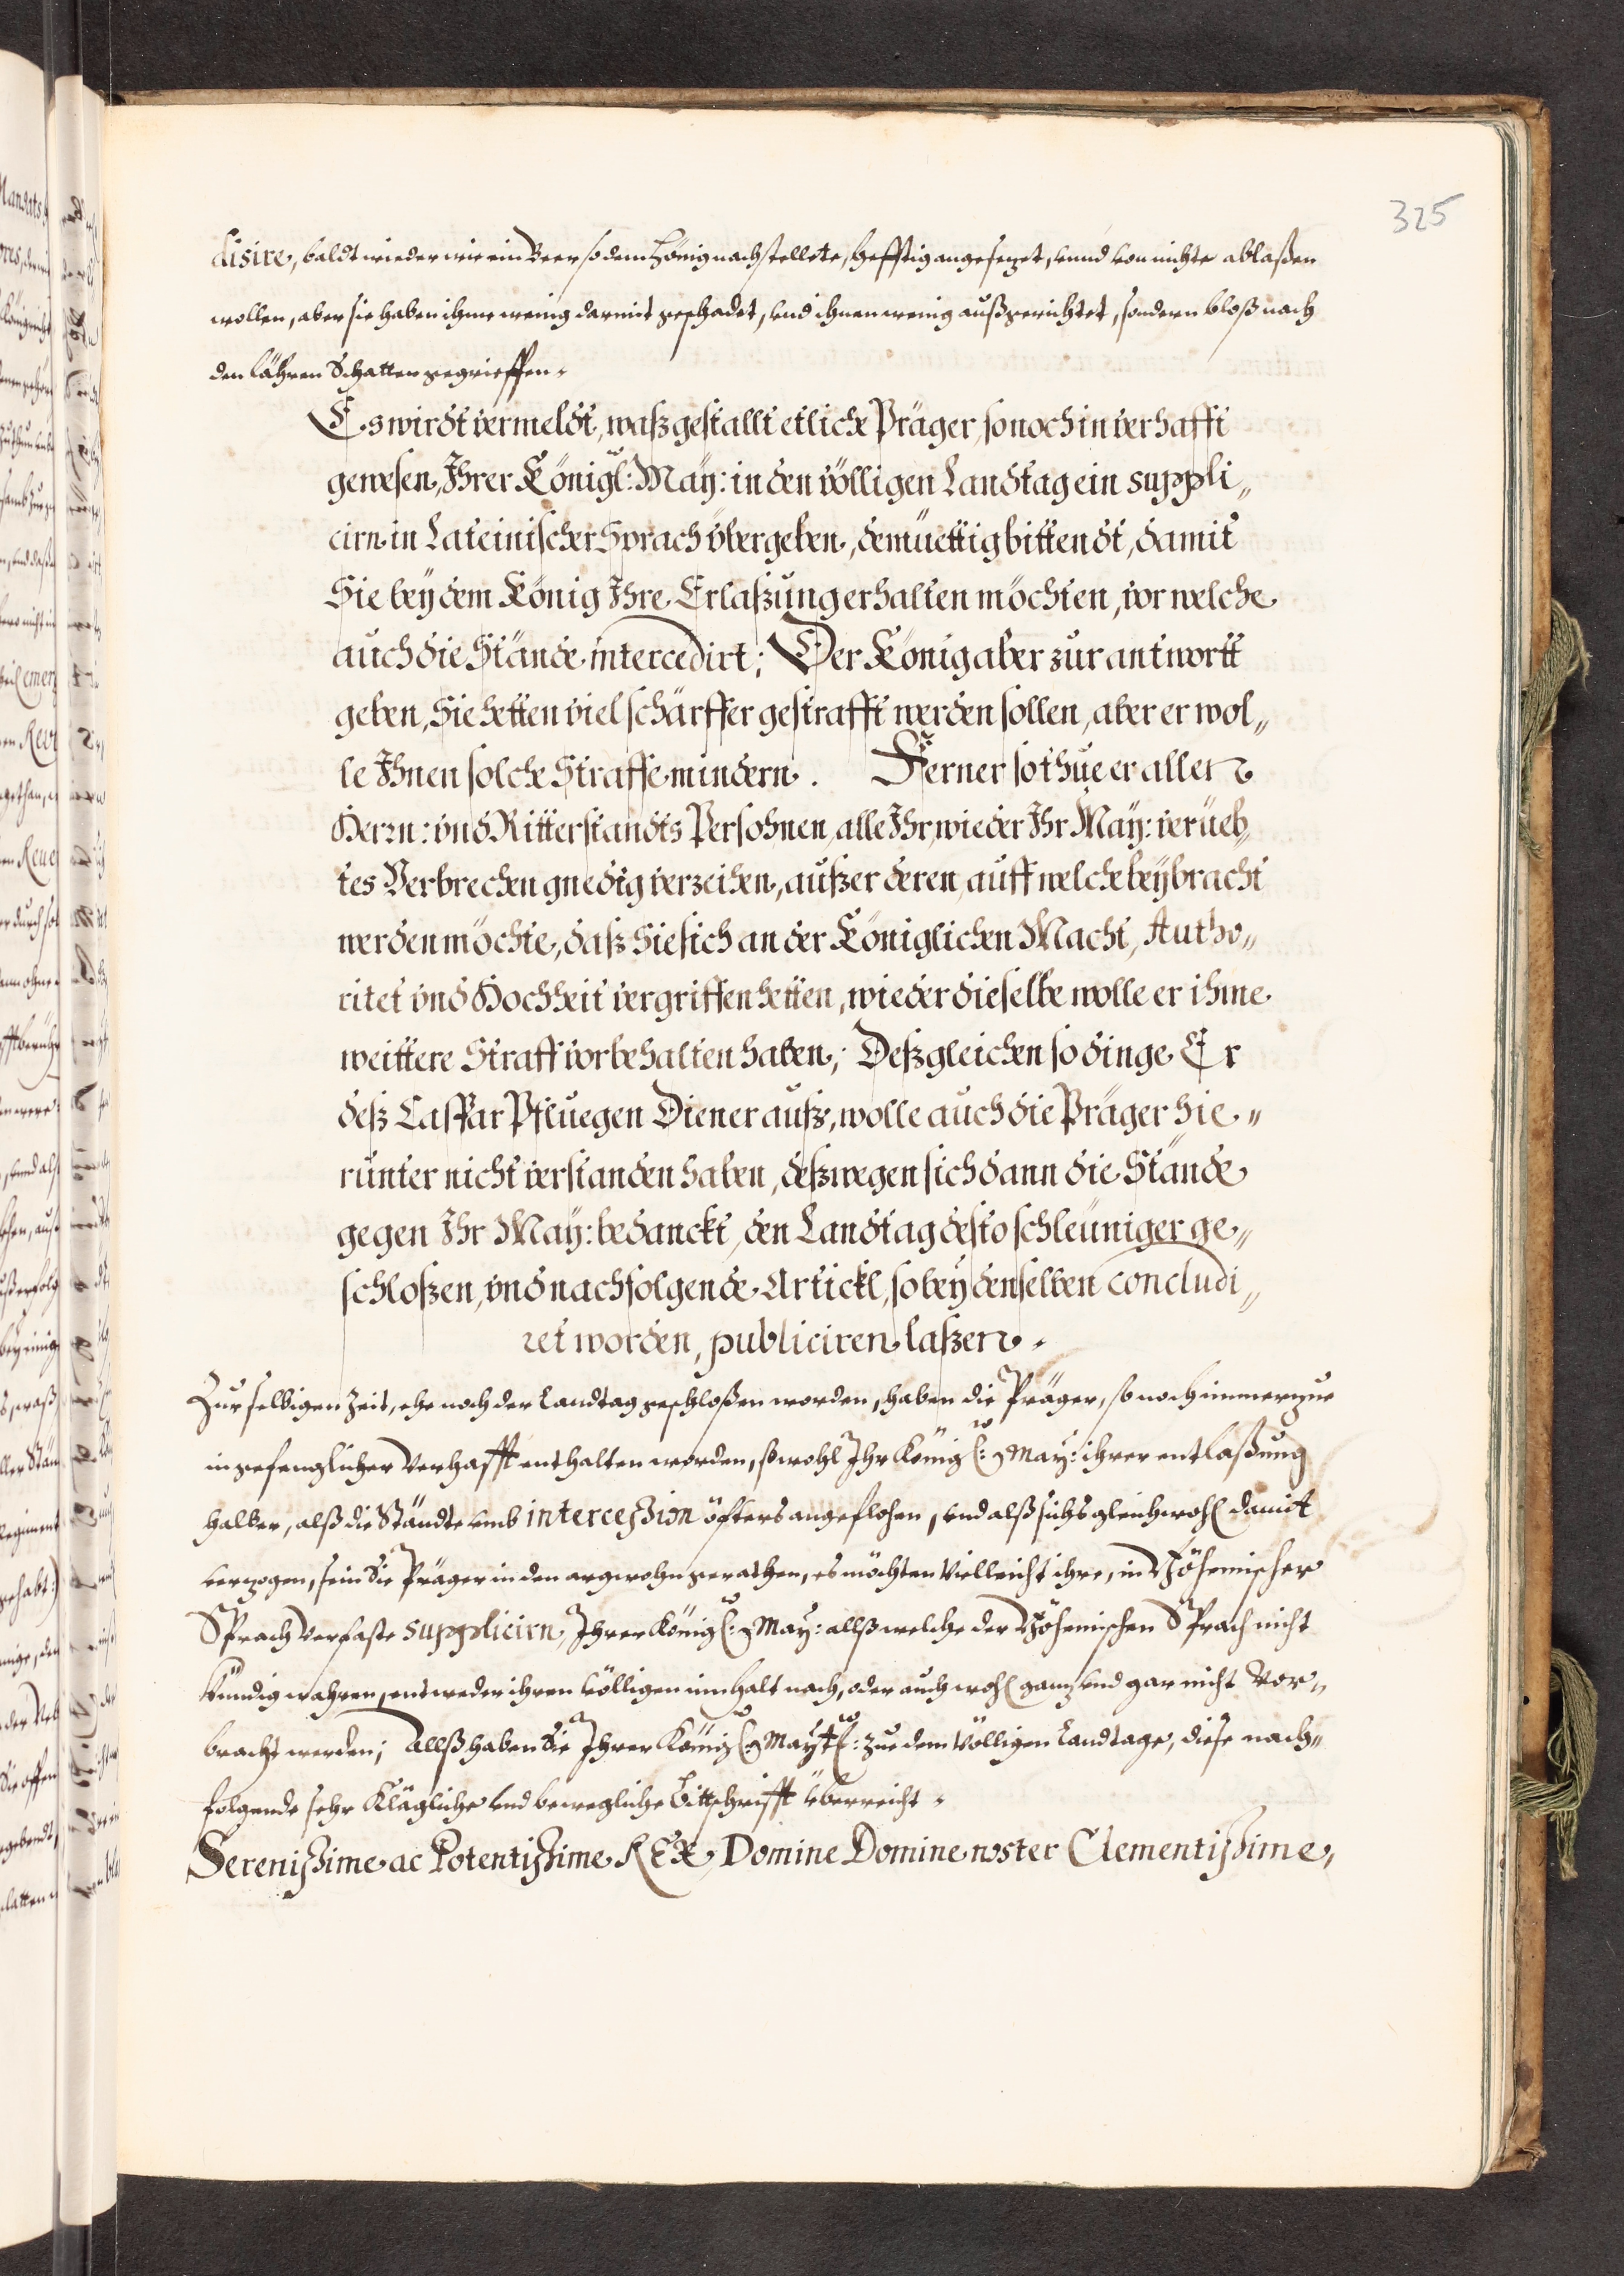 325
disire, baldt wieder wie ein Beer so dem Hönig nachstellete, hefftig angesezet, vnnd von nichte ablaßen
wollen, aber sie haben ihme wenig darmit geschadet, vnd ihnen wenig außgerichtet, sondern bloß nach
den lähren Schatten gegrieffen.
Es wirdt vermeldt, waß gestallt etliche Präger, so noch in verhafft
gewesen, Ihrer Königl: May: in den völligen Landtag ein suppli„
cirn in Lateinischer Sprach vbergeben, demüettig bittendt, damit
Sie bey dem König Ihre Erlaßung erhalten möchten, vor welche
auch die Stände intercedirt; Der König aber zur antwortt
geben, Sie hetten viel schärffer gestrafft werden sollen, aber er wol„
le Ihnen solche Straffe mindern. Ferner so thue er allen
Herrn: vnd Ritterstandts Persohnen, alle Ihr, wieder Ihr May: verüeb„
tes Verbrechen gnedig verzeihen, außer deren, auff welche beybracht
werden möchte, daß Sie sich an der Königlichen Macht, Autho„
ritet vnd Hochheit vergriffen hetten, wieder dieselbe wolle er ihme
weittere Straff vorbehalten haben; Deßgleichen so dinge Er
deß Caspar Pfluegen Diener auß, wolle auch die Präger hie„
runter nicht verstanden haben, deßwegen sich dann die Stände
gegen Ihr May: bedanckt, den Landtag desto schleuniger ge„
schloßen, vnd nachfolgende Artickl, so bey denselben concludi„
ret worden, publiciren laßen.
Zur selbigen Zeit, ehe noch der Landtag geschloßen worden, haben die Präger, so noch immerzue
in gefenglicher Verhafft enthalten worden, sowohl Ihr Königl: May: ihrer entlaßung
halber, alß die Ständte vmb intercession öfters angeflohen, vnd alß sichs gleichwohl damit
verzogen, sein die Präger in den argwohn gerathen, es möchten vielleicht ihre, in Böhemischer
Sprach verfaste supplicirn, Ihrer Königl: May: allß welche der Böhemischen Sprach nicht
kündig wahren, entweder ihren völligen innhalt nach, oder auch wohl ganz vnd gar nicht vor„
bracht werden; Allß haben Sie Ihrer Königl: Maytt: zue dem völligen Landtage, diese nach„
folgende sehr klägliche vnd bewegliche Bittschrifft überreicht.
Serenissime ac Potentissime REX, Domine Domine noster Clementissime,